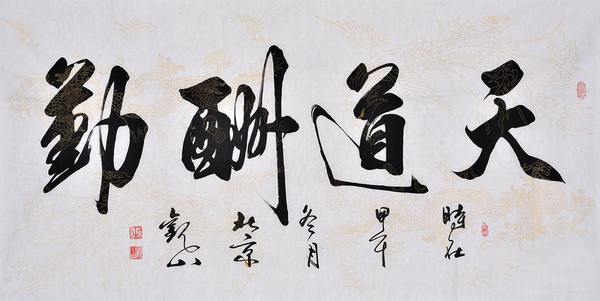 天道酬勤
時在甲午冬月北京觀山